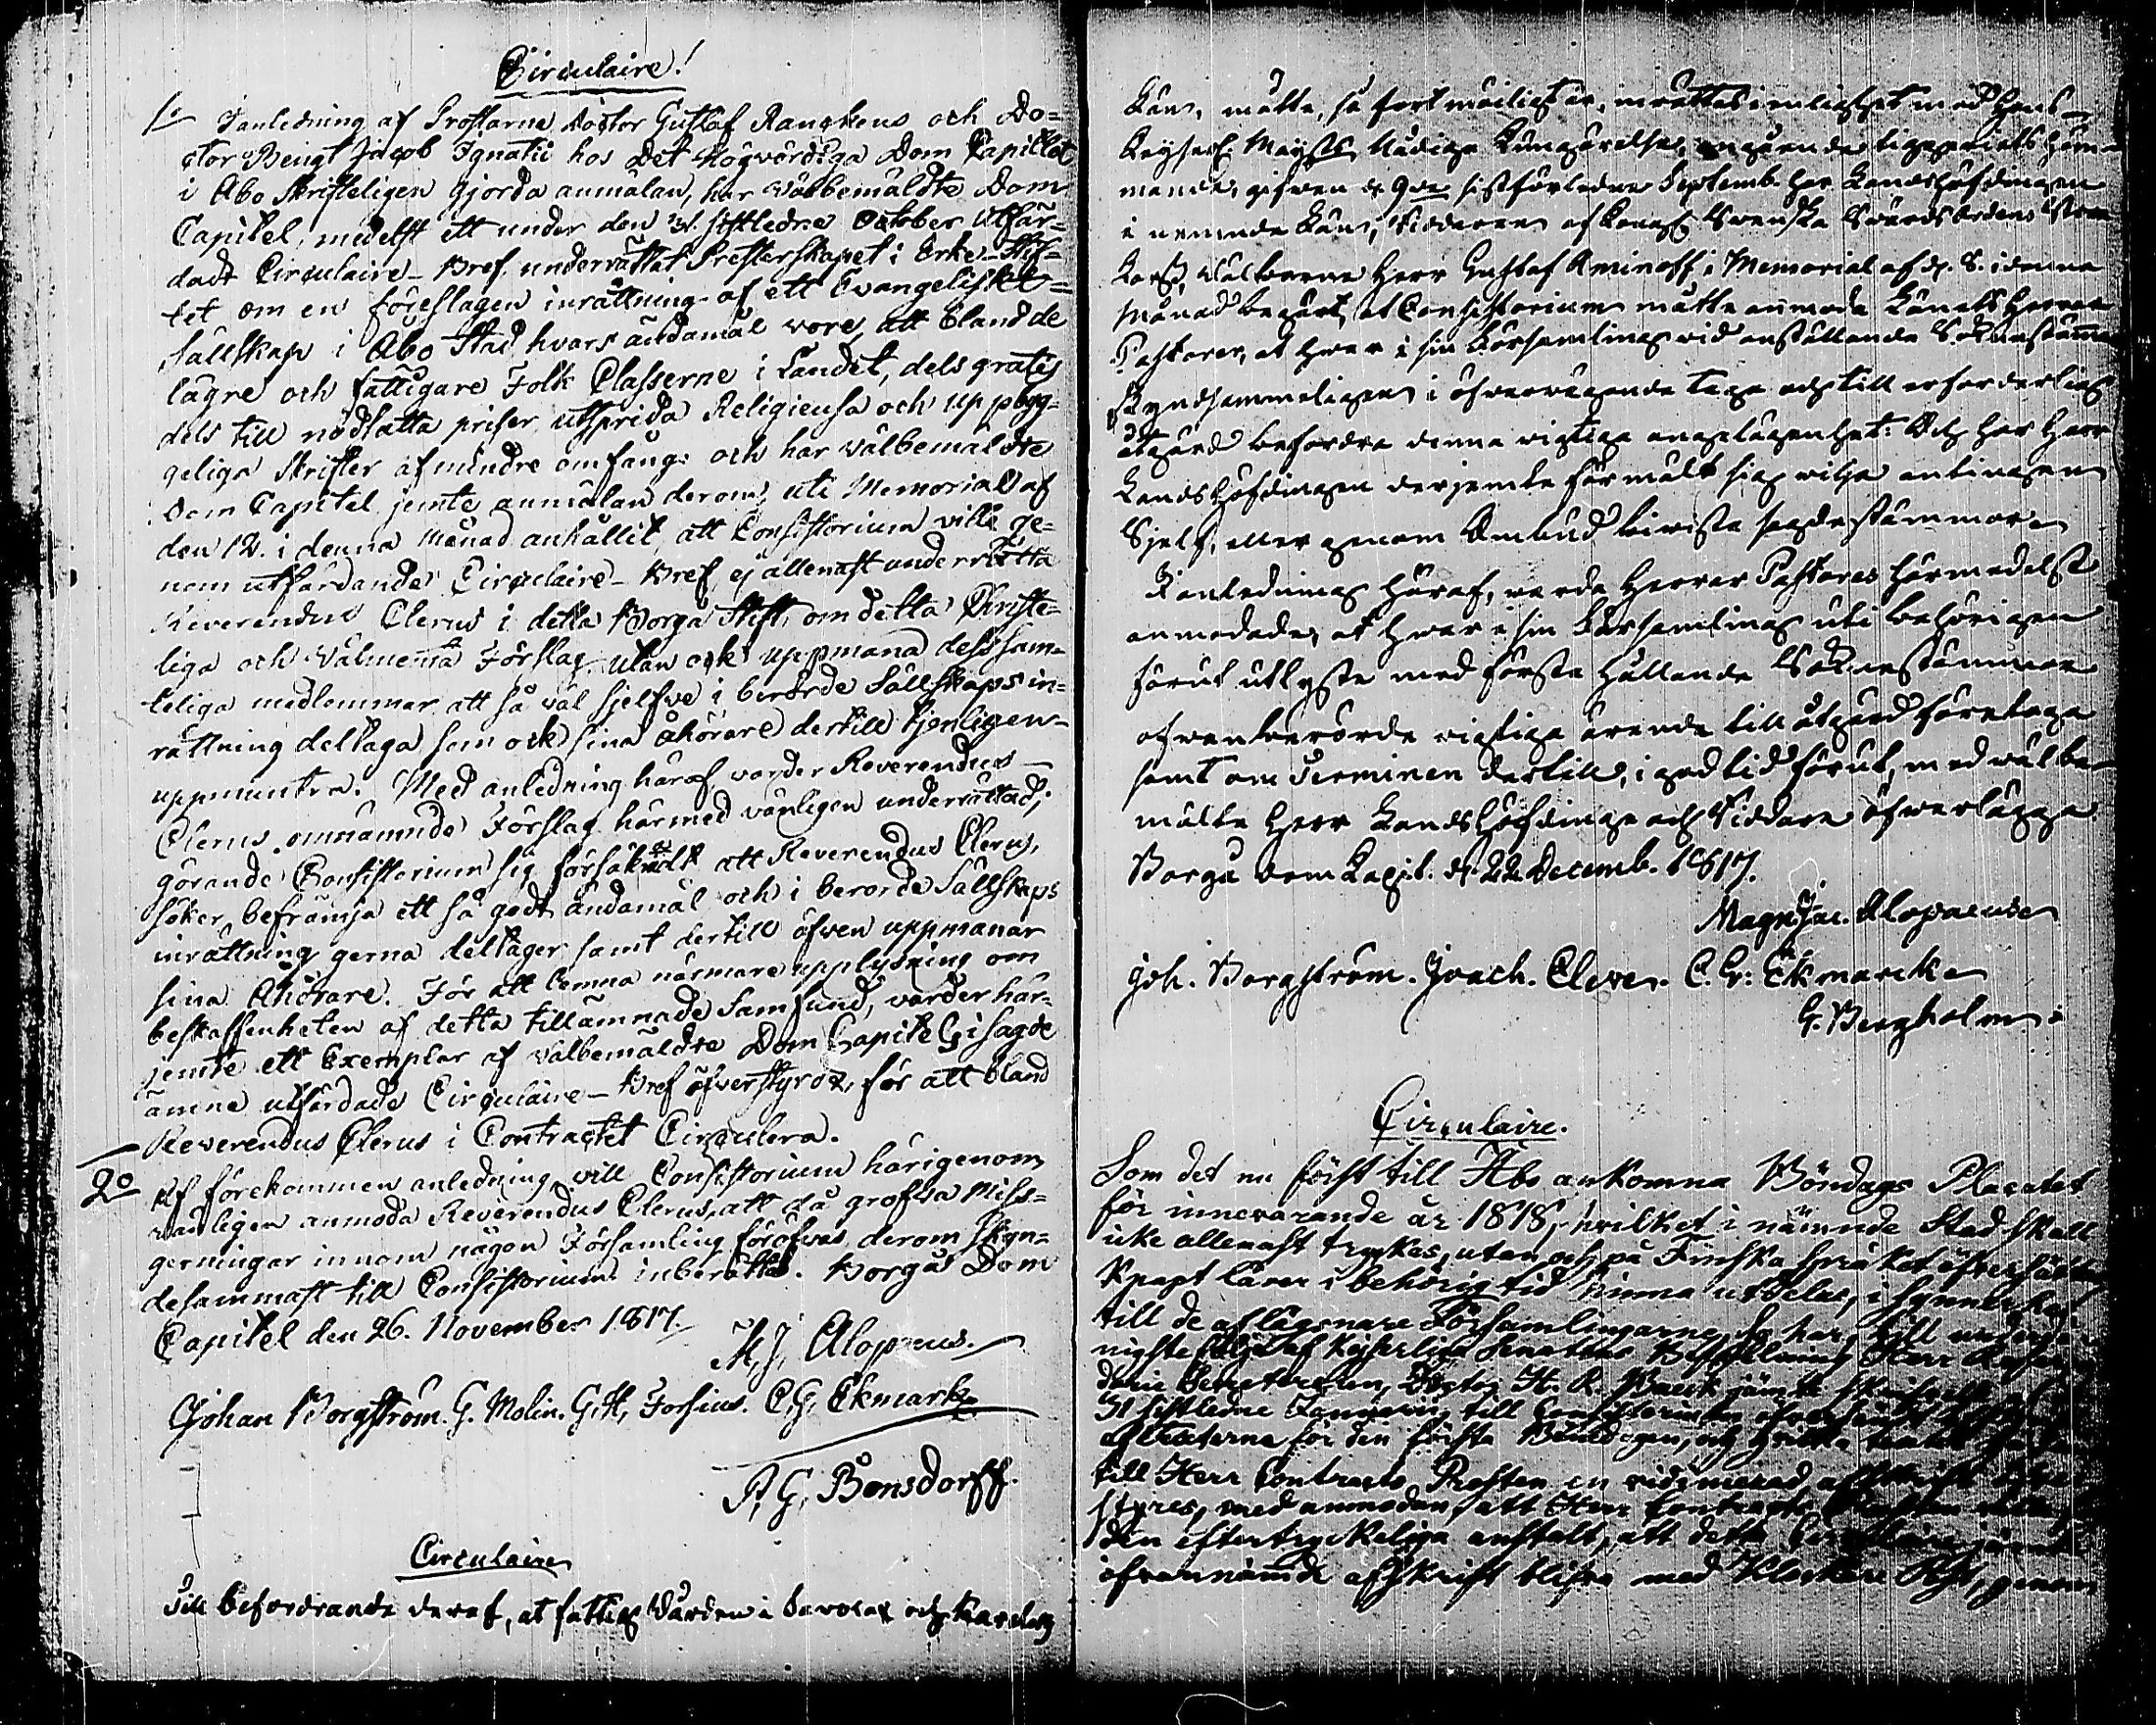 Circulaire!
1o I anledning af Prostarne Doctor Gustaf Ranckens och Do=
ctor Bengt Jacob Ignatii hos Det Högvördiga Dom Capitlet
i Åbo skrifteligen gjorda anmälan, har Välbemäldte Dom
Capitel, medelst ett under den 31. sistledne October utfär=
dadt Circulaire-Bref underrättat Presterskapet i Erke-Stif=
tet om en föreslagen inrättning af ett Evangeliskt=
Sällskap i Åbo Stad hvars ändamål vore, att bland de
lägre och fattigare Folk Classerne i Landet, dels gratis
dels till nedsatta priser utsprida Religieusa och uppbyg=
geliga Skrifter af mindre omfång: och har välbemäldte
Dom Capitel jemte anmälan derom, uti Memorial af
den 12. i denna Månad anhållit, att Consistorium ville ge=
nom utfärdande Circulaire-Bref ej allenast underrätta
Reverendus Clerus i detta Borgå Stift, om detta Christe=
liga och Välmenta Förslag, utan ock uppmana dess sam=
teliga medlemmar att så väl sjelfve i berörde Sällskaps in=
rättning deltaga som ock sina åhörare dertill tjenligen
uppmuntra. Med anledning häraf varder Reverendus
Clerus omnämnde Förslag härmed vänligen underrättad;
görande Consistorium sig försäkradt att Reverendus Clerus,
söker befrämja ett så godt ändamål och i berörde Sällskaps
inrättning gerna deltager samt dertill äfven uppmanar
sina Åhörare. För att lemna närmare upplysning om
beskaffenheten af detta tillämnade Samfund, varder här=
jemte ett Exemplar af Välbemäldte Dom Capitel i sagde
ämne utfärdade Circulaire-Bref öfverstyrdt, för att bland
Reverendus Clerus i Contractet Circulera.
2o Af förekommen anledning vill Consistorium härigenom
vänligen anmoda Reverendus Clerus, att då grofva Miss=
gerningar innom någon Församling föröfvas, derom skyn=
desammast till Consistorium inberätta. Borgå Dom
Capitel den 26. November 1817.
M. J. Alopæus.
Johan Borgström. G. Molin. G. H. Forsius. C. G. Ekmark
P. G. Bonsdorff.
Circulaire
Till befordrande deraf, at fattig Vården i Savolax och Karelen
Län, måtte, så fort möiligt är, inrättas i enlighet med Hans
Keyserl. Mayts Nådige Kungörelse, angående tiggeriets häm=
mande, gifwen d. 9de sistförledne Septemb. har Landshöfdingen
i nemnde Län, Riddaren af Kongl Svenska Svärds Orden Stora
Kors, Välborne Herr Gustaf Aminoff i Memorial af d. 8. i denna
Månad begärt, at Consistorium måtte anmoda Länets Herrar
Pastorer, at hvar i sin Församling vid anställande Sockenstämma
skyndsammeligen i öfwervägande taga och till erforderlig
åtgärd befordra denna wigtiga angelägenhet: Och har Herr
Landshöfdingen derjemte förmält sig vilja antingen
Sjelf, eller genom Ombud bivista sagde stämmor.
I anledning häraf, warda Herrar Pastores härmedelst
anmodade, at hwar i sin Församling uti behörigen
förut utlyste med första hållande Sockenstämmor
ofwanberörde wigtiga ärende till åtgärd företaga
samt om Terminen dertill, i god tid förut, med wälbe=
mälte Herr Landshöfdinge och Riddare öfwerlägga
Borgå Dom Capit. d. 22 Decemb. 1817.
Magn. Jac. Alopaeus
Joh. Borgström. Joach. Cleve. C. G: Ekmarck
G. Bergholm
Circulaire.
Som det nu först till Åbo ankomna Böndags Placatet
för innevarande år 1818, hvilket i nämnde Stad skall
icke allenast tryckas, utan och på Finska språket öfversättas
knapt lärer i behörig tid hinna utdelas, i synnerhet
till de aflägsnare Församlingarne, så har, till underdå=
nigste följd af Kejserliga Senatens Befallning Herr
Secreteraren, Doctor H. R. Baeck jämte skrifvelse
31 sistledne Januarii, till Consistorium öfversändt
af Texterne för den första Bönedagen, och hvilka
till Herr Contracts Prosten en vidimerad afskrift öfver
styres, med anmodan, att Herr Contracts Prosten
den eftertryckeliga anstalt, att detta Circulaire jämte
ofvannämde afskrift blifva med Klockare Post, genom